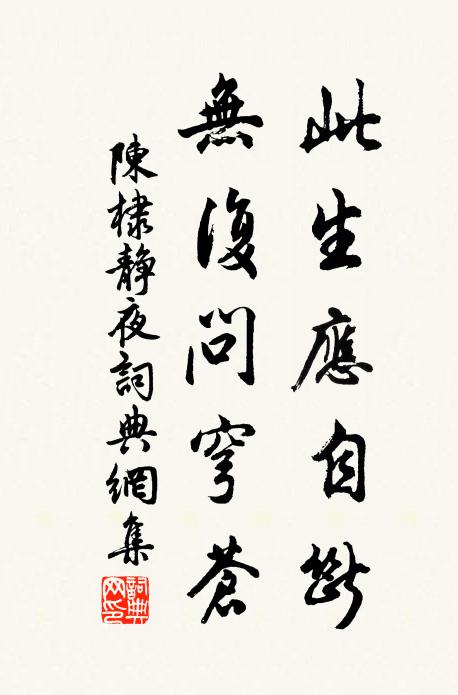 此生應自斷
無復問穹蒼
陳棣靜夜詞典網集
詞典网印